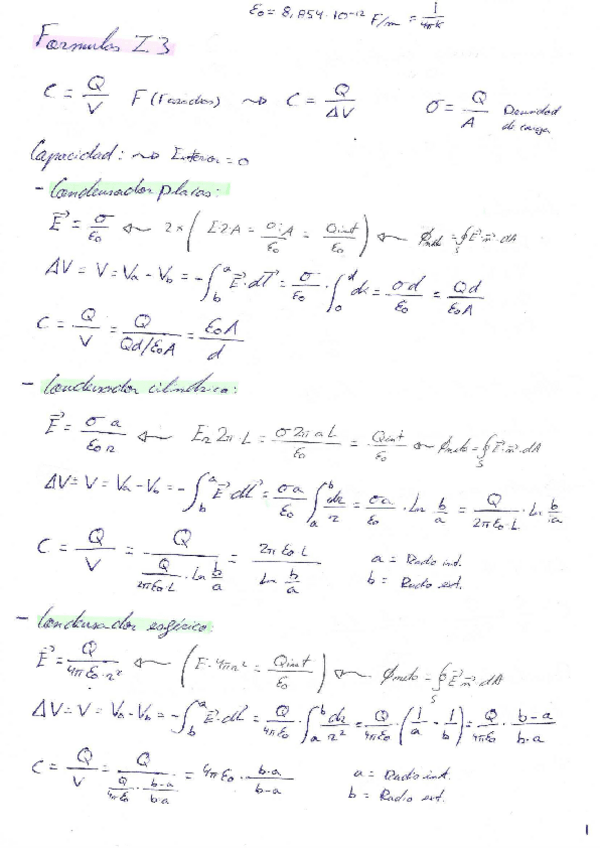 ε₀ = 8,854·10⁻¹² F/m = 1/4πk
Formulas I.3
C = Q/V F (Faradios) ~> C = Q/ΔV σ = Q/A Densidad de carga
Capacidad: ~> Interior = 0
- Condensador placas:
E⃗ = σ/ε₀ <~ 2×( E·2·A = σ·A/ε₀ = Qint/ε₀ ) <~ ϕneto = ∮s E⃗·n⃗·dA
ΔV = V = Va - Vb = -∫_b^a E⃗·dl⃗ = σ/ε₀ · ∫_0^d dx = σd/ε₀ = Qd/ε₀A
C = Q/V = Q/(Qd/ε₀A) = ε₀A/d
- Condensador cilíndrico:
E⃗ = σ a/ε₀ r <~ Er 2π·L = σ2π a L/ε₀ = Qint/ε₀ <~ ϕneto = ∮s E⃗·n⃗·dA
ΔV = V = Va - Vb = -∫_b^a E⃗ dl⃗ = σa/ε₀ ∫_a^b dr/r = σa/ε₀ · Ln b/a = Q/2πε₀·L · Ln b/a
C = Q/V = Q/(Q/2πε₀·L · Ln b/a) = 2π ε₀ L/Ln b/a a = Radio int.
b = Radio ext.
- Condensador esférico:
E⃗ = Q/4πε₀·r² <~ ( E·4πr² = Qint/ε₀ ) <~ ϕneto = ∮s E⃗·n⃗ dA
ΔV = V = Va - Vb = -∫_b^a E⃗·dl⃗ = Q/4πε₀ · ∫_a^b dr/r² = Q/4πε₀ · (1/a - 1/b) = Q/4πε₀ · b-a/b·a
C = Q/V = Q/(Q/4πε₀ · b-a/b·a) = 4π ε₀ · b·a/b-a a = Radio int.
b = Radio ext.
1